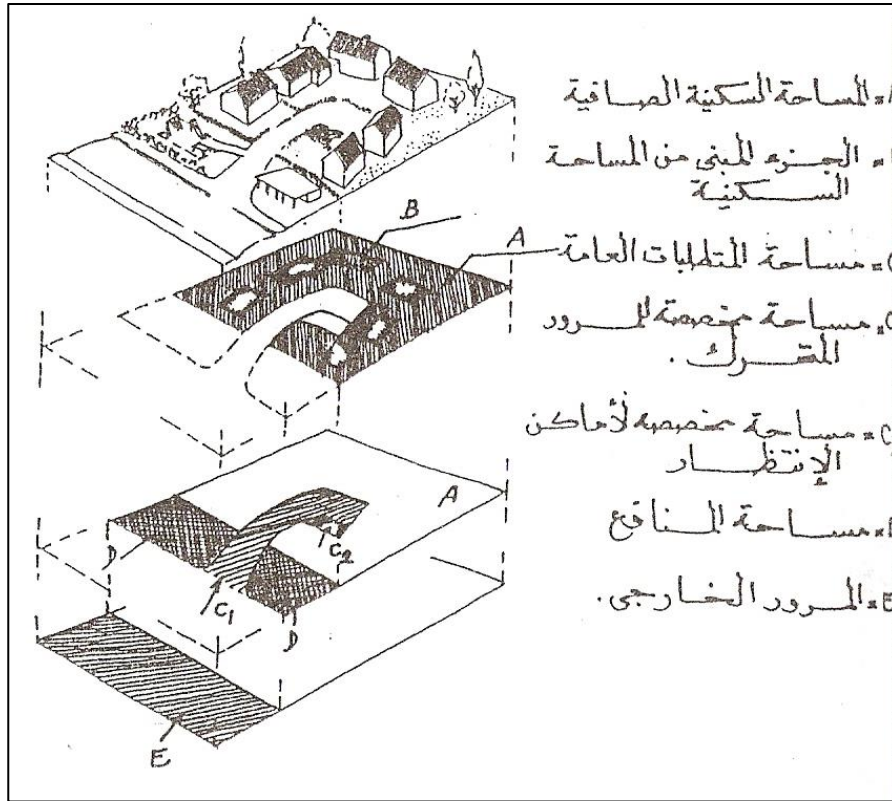 B
A
A
C2
D
C1
D
E
= المساحة السكنية الصافية
= الجزء المبنى من المساحة
السكنية
= مساحة المتطلبات العامة
= مساحة مخصصة للمرور
المتحرك .
C = مساحة مخصصه لأماكن
الإنتظار
= مساحة المنافع
E = المرور الخارجى .